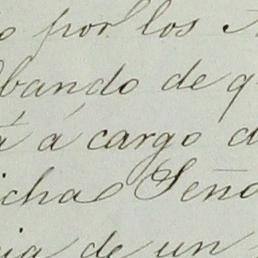 por los
bando de q
á á cargo d
icha Seño
cia de un